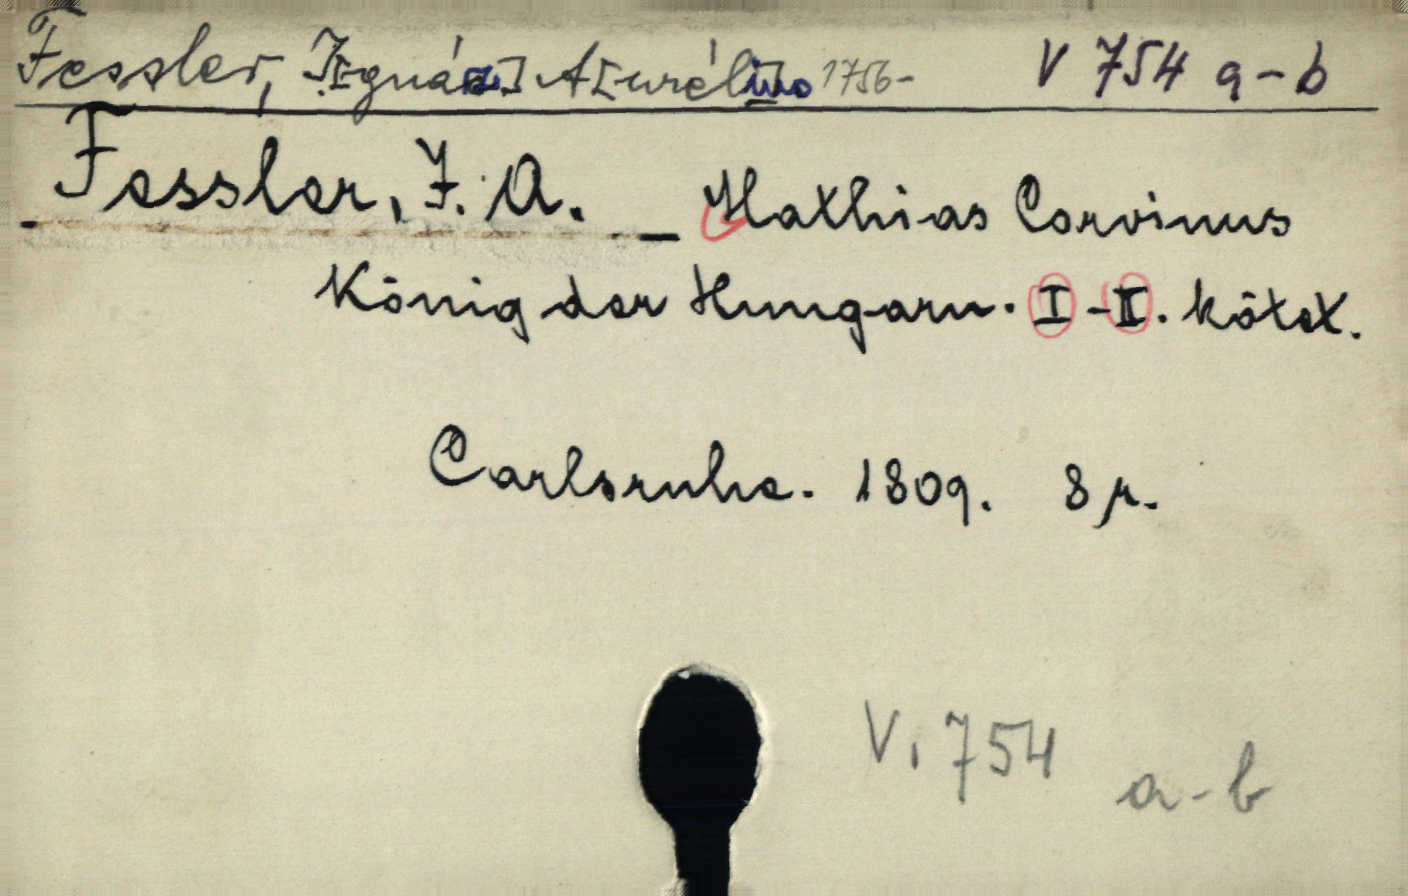 Fessler, I[gnác] A[urél] 1756- V 754 a-b
Fessler, I. A. — Mathias Corvinus
König der Hungarn. I-II. kötet.
Carlsruhe. 1809. 8 r.
V. 754 a-b